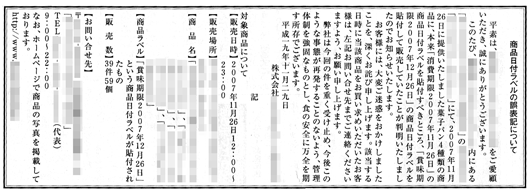 商品日付ラベルの誤記について
平素は、
をご愛顧
いただき、誠にありがとうございます。
このたび、
内にある
の
にて、2007年11月
26日に提供いたしました菓子パン4種類の商
品に、本来「消費期限2007年11月26日」の
商品日付ラベルを貼付すべきところ、「賞味期
限2007年12月26日」の商品日付ラベルを
貼付して販売していたことが判明いたしまし
たのでお知らせいたします。
お客様には、大変ご迷惑をおかけしました
ことを、深くお詫び申し上げます。該当する
日時に当該商品をお買い求めいただいたお客
様は、左記お問い合せ先までご連絡ください
ますよう、お願い申し上げます。
弊社は今回の件を重く受け止め、今後この
ような事態が再発することのないよう、管理
体制を強固なものとし、食の安全に万全を期
す所存でございます。
平成一九年十一月二九日
株式会社
記
対象商品について
【販売日時】2007年11月26日12:00〜
23:00
【販売場所】
【商品名】
【商品ラベル】「賞味期限2007年12月26日」
という商品日付ラベルが貼付され
たもの
【販売数】39件59個
【お問い合せ先】
TEL
(代表)
9:00〜22:00
なお、ホームページで商品の写真を掲載して
おります。
http://www.